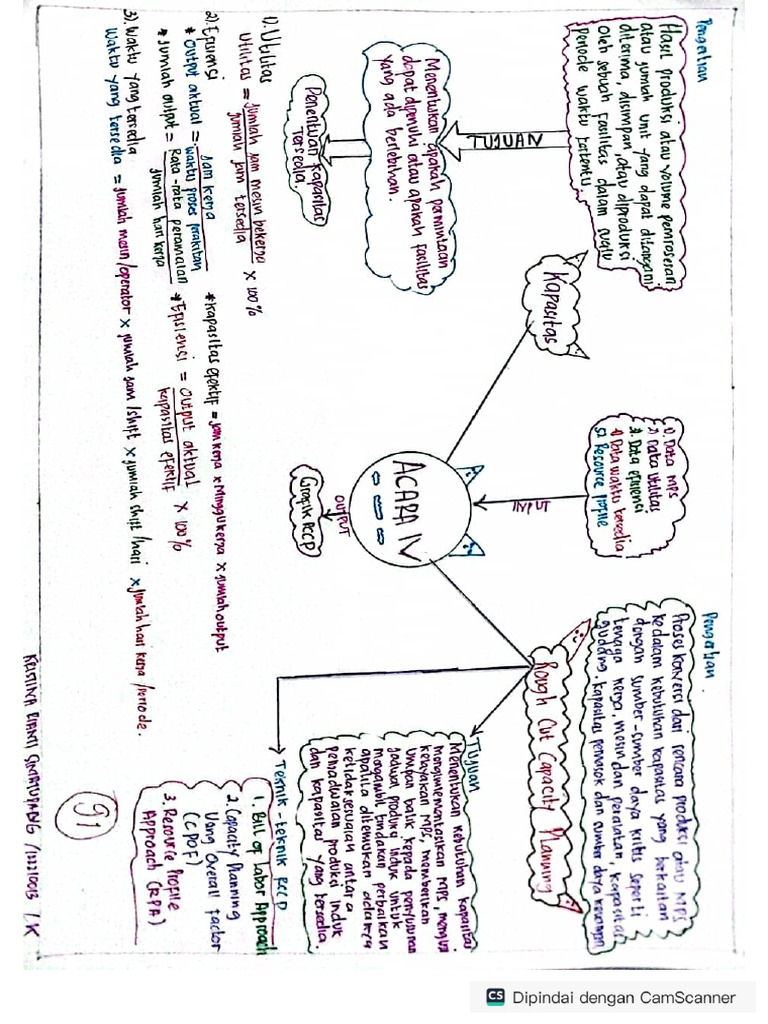 Pengertian
Hasil produksi atau volume pemrosesan
atau jumlah unit yang dapat ditangani
diterima, disimpan, atau diproduksi
oleh sebuah fasilitas dalam suatu
periode waktu tertentu.
TUJUAN
Menentukan apakah permintaan
dapat dipenuhi atau apakah fasilitas
yang ada berlebihan.
Penentuan kapasitas
tersedia.
Kapasitas
1). Data MPS
2) Data Utilitas
3). Data efisiensi
4) Data waktu tersedia
5) Resource Profile
INPUT
ACARA IV
OUTPUT
Grafik RCCP
Pengertian
Proses konversi dari rencana produksi atau MPS
kedalam kebutuhan kapasitas yang berkaitan
dengan sumber-sumber daya kritis seperti
tenaga kerja, mesin dan peralatan, kapasitas
gudang, kapasitas pemasok dan sumber daya keuangan
Rough Cut Capacity Planning
Tujuan
Menentukan kebutuhan kapasitas
mengimplementasikan MPS, menguji
kelayakan MPS, memberikan
umpan balik kepada penyusunan
jadwal produksi induk untuk
mengambil tindakan perbaikan
apabila ditemukan adanya
ketidaksesuaian antara
penjadwalan produksi induk
dan kapasitas yang tersedia.
Teknik-teknik RCCP
1. Bill of Labor Approach
2. Capacity Planning
Using Overall Factor
(CPOF)
3. Resource Profile
Approach (RPA)
1). Utilitas
Utilitas = Jumlah jam mesin bekerja / jumlah jam tersedia x 100%
2). Efisiensi
* Output aktual = Jam kerja / waktu proses perakitan
* kapasitas efektif = jam kerja x minggu kerja x jumlah output
* Jumlah output = Rata-rata peramalan / jumlah hari kerja
* Efisiensi = output aktual / kapasitas efektif x 100%
3). Waktu yang tersedia
Waktu yang tersedia = jumlah mesin/operator x jumlah jam/shift x jumlah shift/hari x jumlah hari kerja/periode.
91
CS Dipindai dengan CamScanner